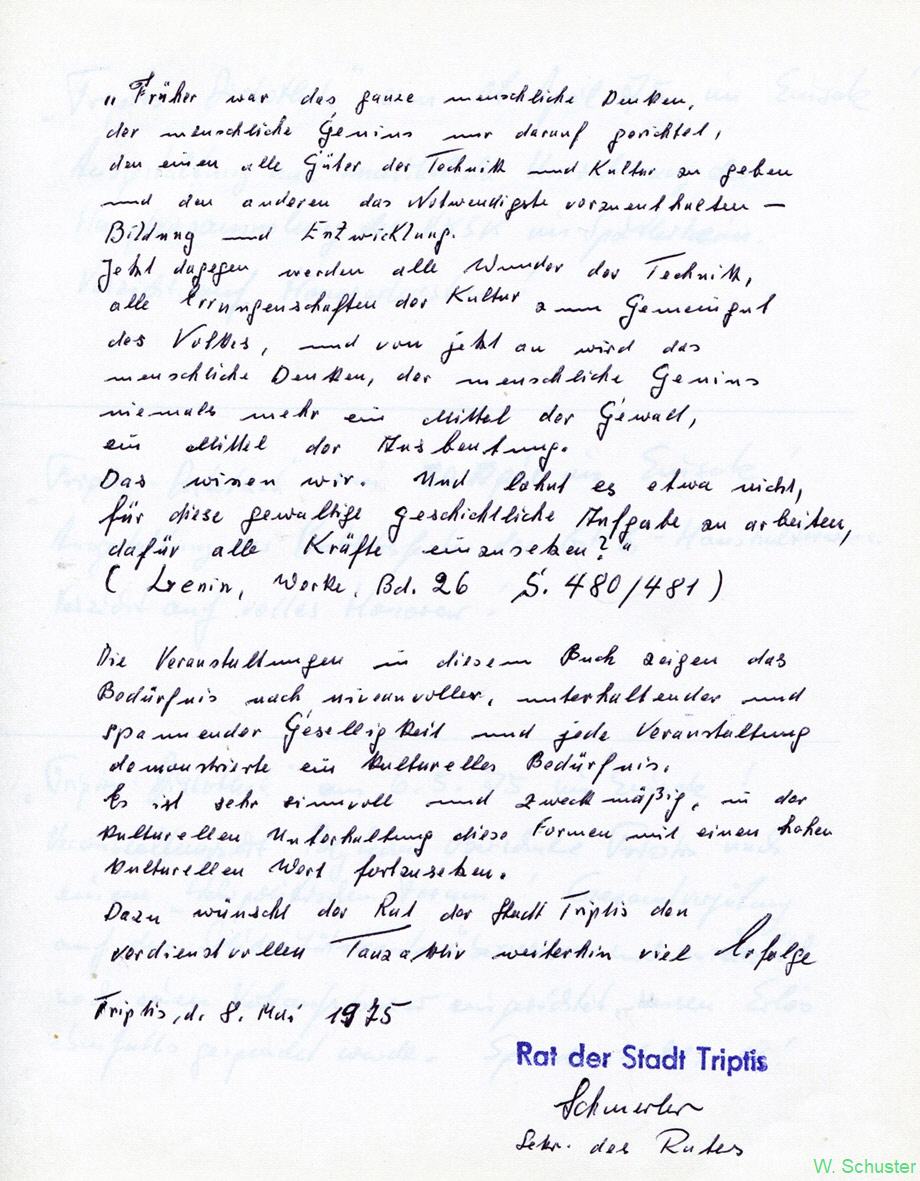 „Früher war das ganze menschliche Denken,
der menschliche Genius nur darauf gerichtet,
den einen alle Güter der Technik und Kultur zu geben
und den anderen das Notwendigste vorzuenthalten —
Bildung und Entwicklung.
Jetzt dagegen werden alle Wunder der Technik,
alle Errungenschaften der Kultur zum Gemeingut
des Volkes, und von jetzt an wird das
menschliche Denken, der menschliche Genius
niemals mehr ein Mittel der Gewalt,
ein Mittel der Ausbeutung.
Das wissen wir. Und lohnt es etwa nicht,
für diese gewaltige geschichtliche Aufgabe zu arbeiten,
dafür alle Kräfte einzusetzen?"
( Lenin, Werke, Bd. 26 S. 480/481 )
Die Veranstaltungen in diesem Buch zeigen das
Bedürfnis nach niveauvoller, unterhaltender und
spannender Geselligkeit und jede Veranstaltung
demonstrierte ein kulturelles Bedürfnis.
Es ist sehr sinnvoll und zweckmäßig, in der
kulturellen Unterhaltung diese Formen mit einen hohen
kulturellen Wert fortzusetzen.
Dazu wünscht der Rat der Stadt Triptis den
verdienstvollen Tanzaktiv weiterhin viel Erfolge
Triptis, d. 8. Mai 1975
Rat der Stadt Triptis
Sekr. des Rates
W. Schuster